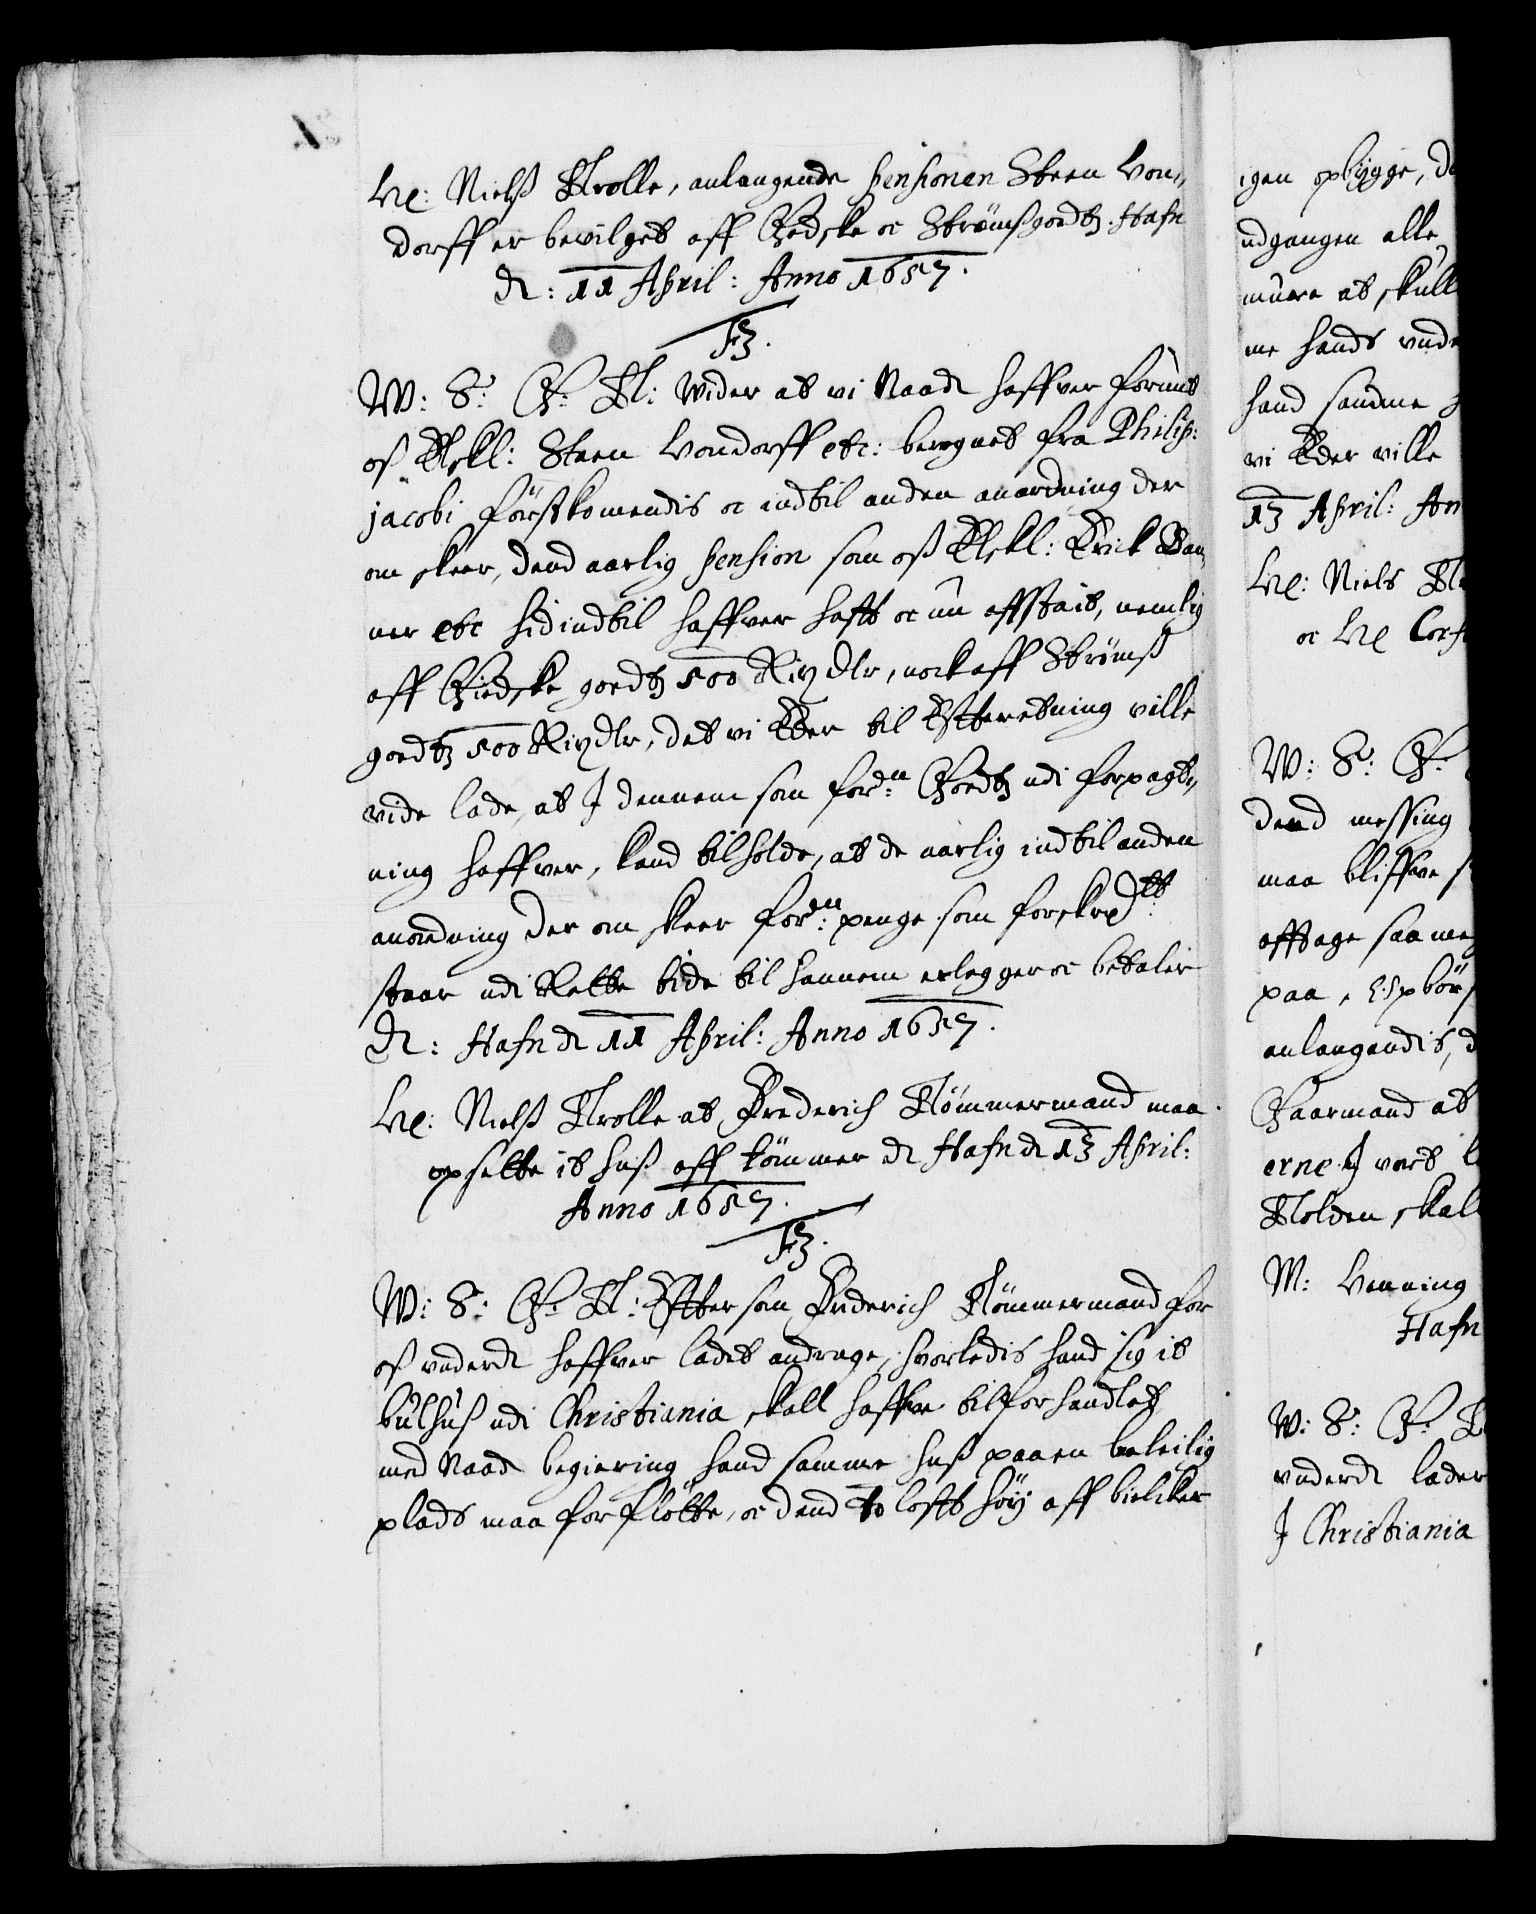 He: Nielß Trolle, anlangende pensionen Steen Hon,,
dorff er bevilget aff Gedske oc Strömßgodtz. Hafn
d: 11 April: Anno 1657.
F3.
W: S: G: T: Wider at vi Naade haffver forunt
oß Elskl: Steen Hondorff etc: beregnet fra Philip:
jacobi förstkomendis oc indtil anden anordning der
om skeer, dend aarlig pension som oß Elskl: Erick Ban,,
ner etc hid indtil haffver hafft oc nu affstait, nemlig
aff Giedske goedtz 500 Rixdlr, nock aff Strömß
goedtz 500 Rixdlr, det vi Eder til Efterretning ville
vide lade, at I dennem som fordn: Goedtz udi forpagt,,
ning haffver, kand tilholde, at de aarlig indtil anden
anordning der om skeer fordn: penge som forskrefftt:
staar udi Rette tide til hannem erlegger oc betaler
d: Hafn d 11 April: Anno 1657.
He: Nielß Trolle at Frederich Tömmermand maa
opsette it huß aff tömmer d Hafn d 13 April:
Anno 1657.
F3.
W: S: G: T: Efftersom Frederich Tömmermand for
oß underd haffver ladet andrage, hvorledis hand sig it
bulhuß udi Christiania skall haffve tilforhandlet
med Naad begiering hand samme huß paa en beleilig
plads maa forflötte, oc dend to lofft höy aff bielcker
igen opbygge,
udgangen alle
muere at skull
me hands unde
hand samme
vi Eder ville
13 April: An
He: Niels
oc He
W: S: G:
dend messing
maa bliffve
afftage saa me
paa,
anlangendis,
Gaarmand at
erne I vort
Tolden skal
M: Henning
Hafn
W: S: G: T
underd lader
I Christiania